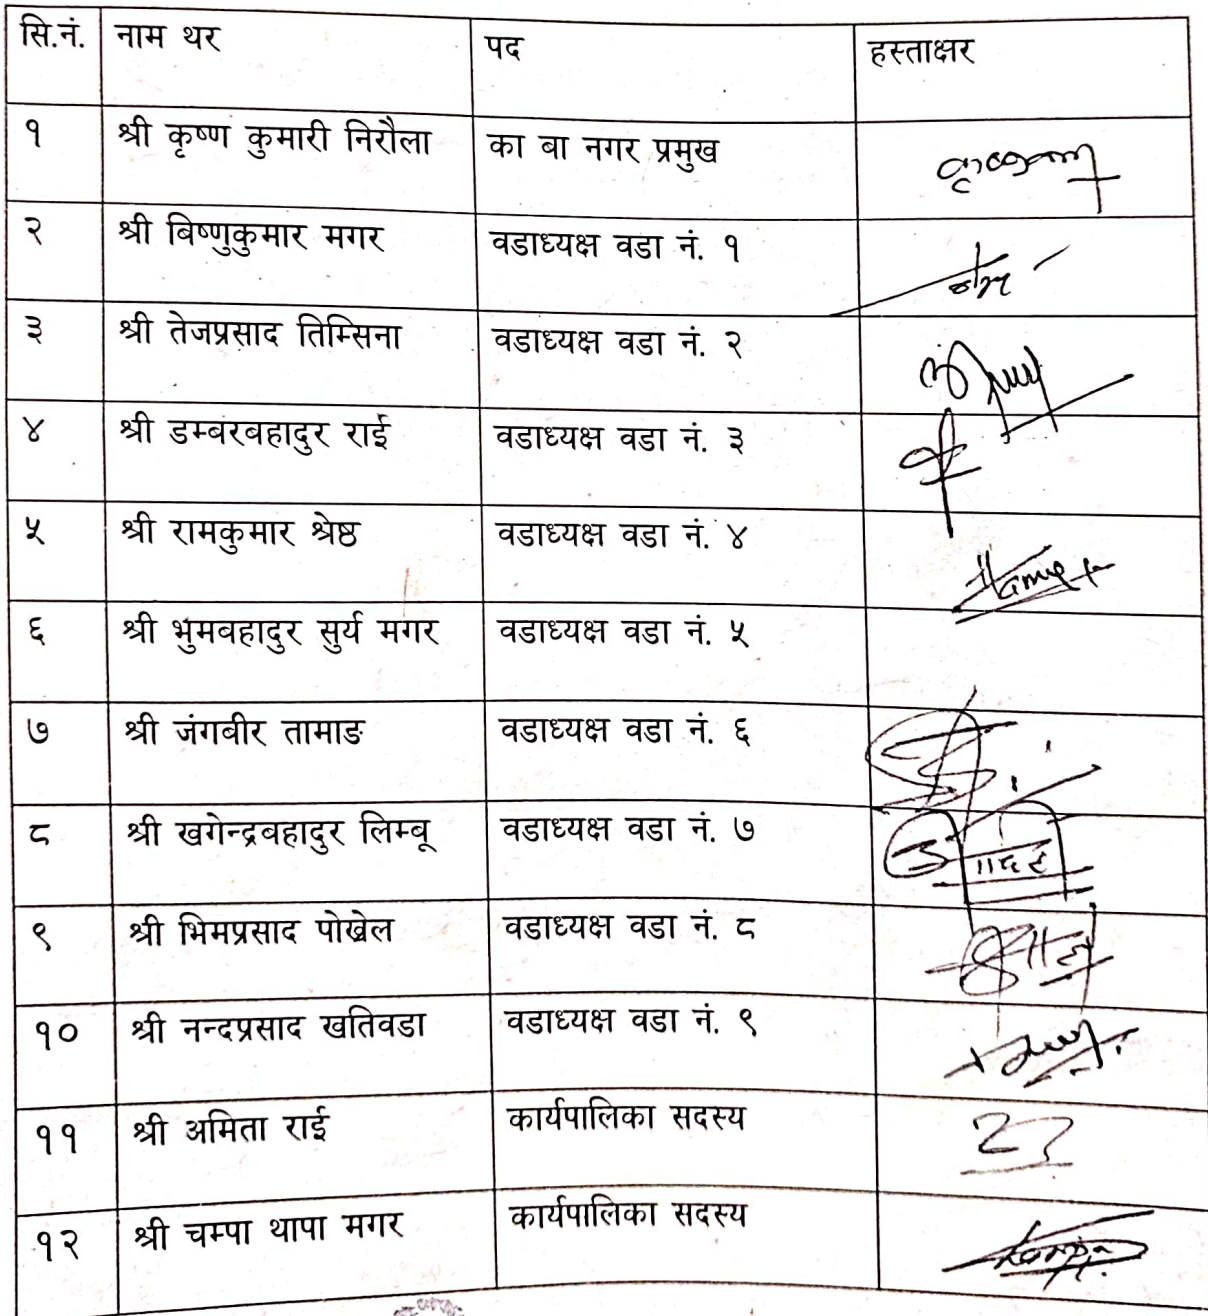 सि.नं. नाम थर पद हस्ताक्षर
१ श्री कृष्ण कुमारी निरौला का बा नगर प्रमुख
२ श्री बिष्णुकुमार मगर वडाध्यक्ष वडा नं. १
३ श्री तेजप्रसाद तिम्सिना वडाध्यक्ष वडा नं. २
४ श्री डम्बरबहादुर राई वडाध्यक्ष वडा नं. ३
५ श्री रामकुमार श्रेष्ठ वडाध्यक्ष वडा नं. ४
६ श्री भुमबहादुर सुर्य मगर वडाध्यक्ष वडा नं. ५
७ श्री जंगबीर तामाङ वडाध्यक्ष वडा नं. ६
८ श्री खगेन्द्रबहादुर लिम्बू वडाध्यक्ष वडा नं. ७
९ श्री भिमप्रसाद पोख्रेल वडाध्यक्ष वडा नं. ८
१० श्री नन्दप्रसाद खतिवडा वडाध्यक्ष वडा नं. ९
११ श्री अमिता राई कार्यपालिका सदस्य
१२ श्री चम्पा थापा मगर कार्यपालिका सदस्य